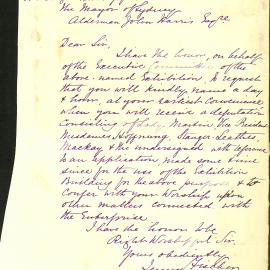 The Mayor of Sydney
Alderman John Harris Esqre
Dear Sir,
I have the honor, on behalf
of the Executive Committee of the
above-named Exhibition, to request
that you will kindly name a day
& hour, at your earliest Convenience
when you will receive a deputation
Consisting of Martin, Vice President
Mesdames Hoffnung, Stanger-Leathes,
Mackay & the undersigned with reference
to an application made some time
since for the use of the Exhibition
Building for the above purpose & to
Confer with your Worship upon
other matters connected with
the Enterprise
I have the honor to be
Right Worshipful Sir
Yours obediently